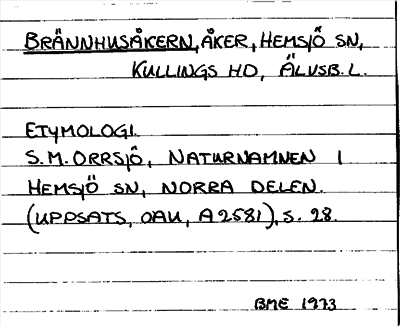 BRÄNNHUSÅKERN, ÅKER, HEMSJÖ SN,
KULLINGS HD, ÄLVSB. L.
ETYMOLOGI.
S. M. ORRSJÖ, NATURNAMNEN I
HEMSJÖ SN, NORRA DELEN.
(UPPSATS, OAU, A 2581), S. 28.
BME 1973